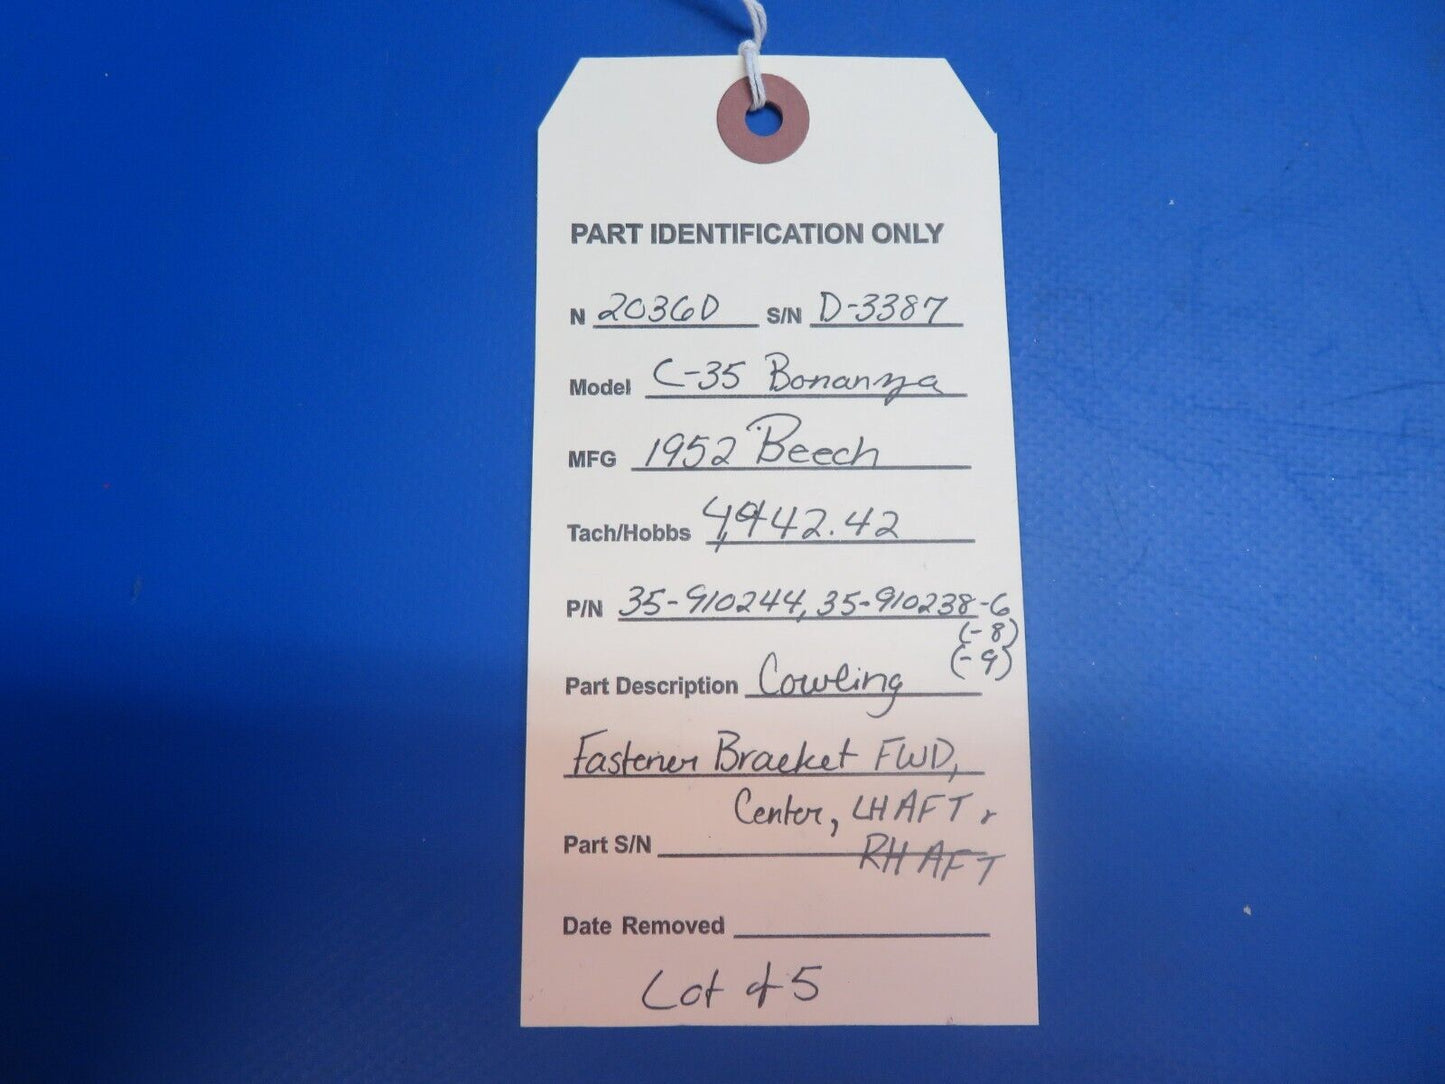 PART IDENTIFICATION ONLY
N 2036D S/N D-3387
Model C-35 Bonanza
MFG 1952 Beech
Tach/Hobbs 4,442.42
P/N 35-910244, 35-910238-6
(-8)
(-9)
Part Description Cowling
Fastener Bracket FWD,
Center, LH AFT &
Part S/N RH AFT
Date Removed
Lot of 5